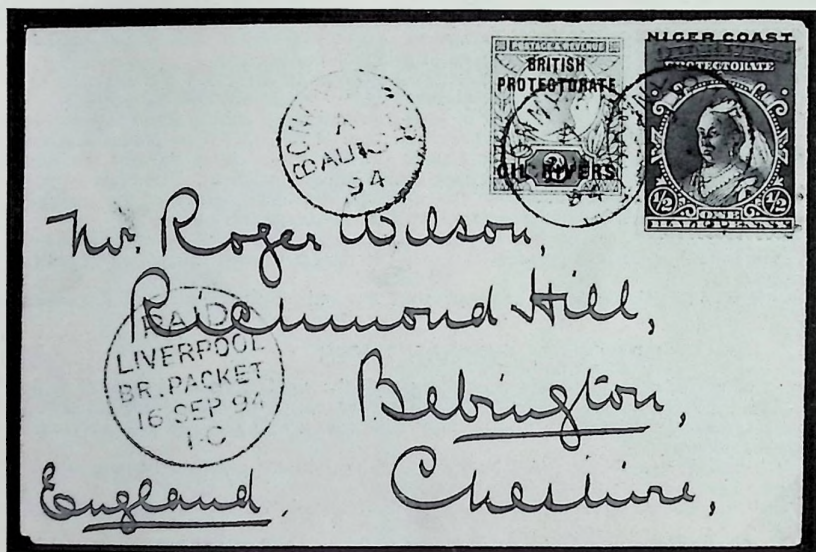 POSTAGE & REVENUE
BRITISH
PROTECTORATE
OIL RIVERS
NIGER COAST
PROTECTORATE
½ ONE ½
HALF PENNY
A
94
Mr. Roger Wilson,
Richmond Hill,
Bebington,
Cheshire,
England.
PAID
LIVERPOOL
BR. PACKET
16 SEP 94
1-C